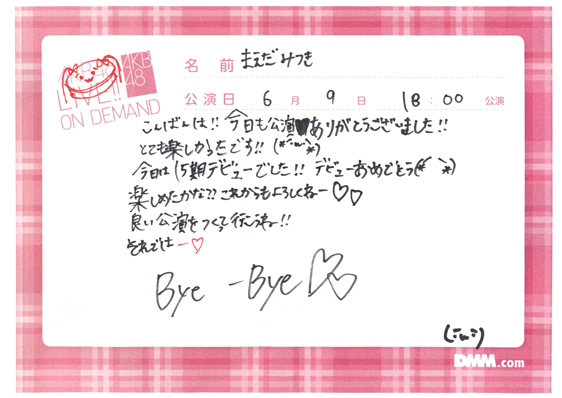 AKB48
LIVE!!
ON DEMAND
名前 まえだみつき
公演日 6月9日 18:00 公演
こんばんは!! 今日も公演♥ありがとうございました!!
とても楽しかったです!!
今日は15期デビューでした!! デビューおめでとう
楽しめたかな?? これからもよろしくねー♡♡
良い公演をつくって行こうねー!!
それでは ー♡
Bye -Bye♡♡
DMM.com